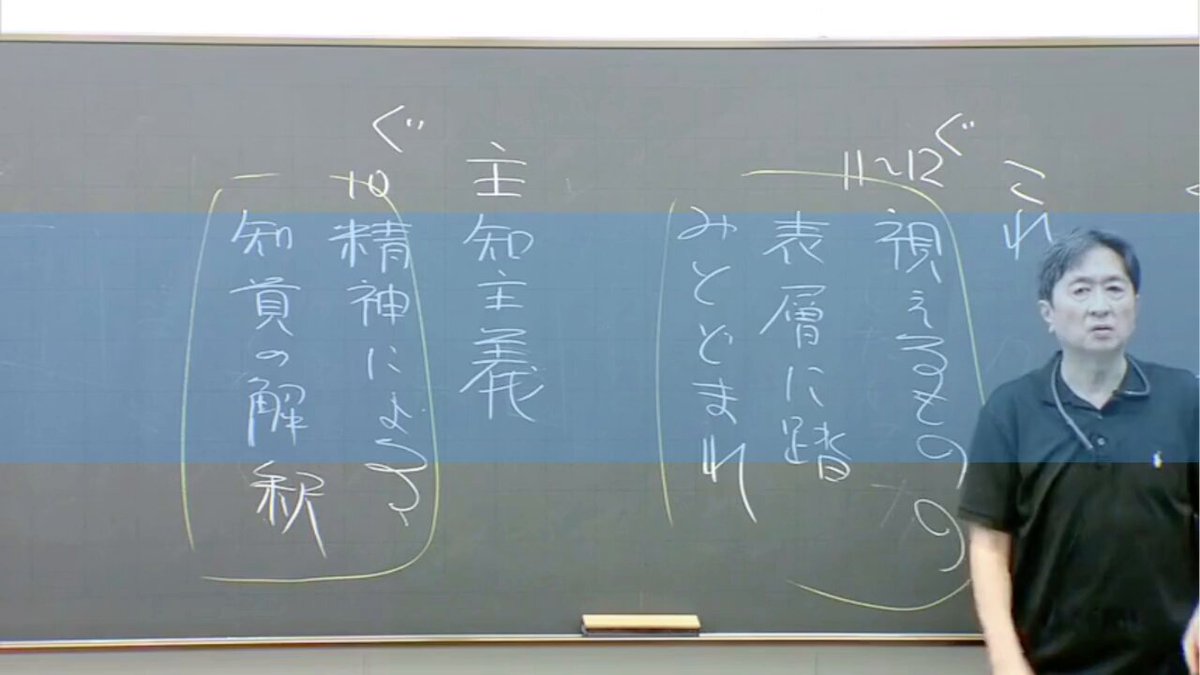 これ
ぐ
11~12
視えるものの
表層に踏
みとどまれ
主知主義
ぐ
10
精神による
知貢の解釈